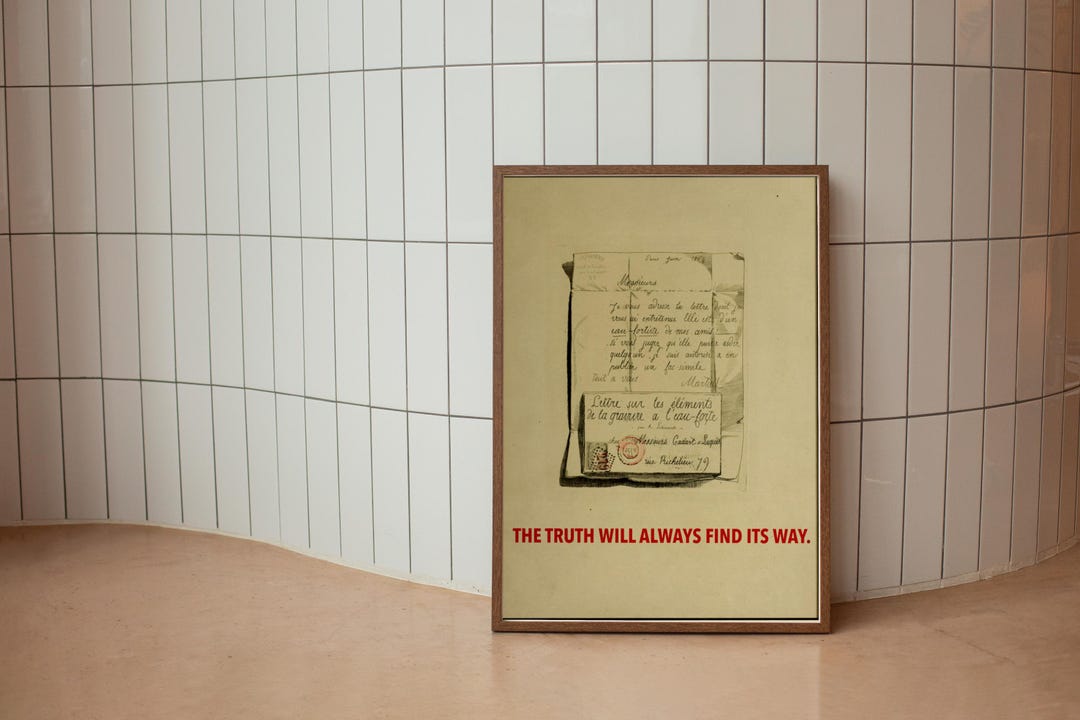 Paris juin 186
Messieurs
Je vous adresse la lettre dont je
vous ai entretenus Elle est d'un
eau-fortiste de mes amis.
si vous jugez qu'elle puisse aider
quelqu'un je suis autorisé a en
publier un fac-simile
Tout a vous
Martial
Lettre sur les éléments
de la gravure a l'eau-forte
chez Messieurs Cadart & Luquet
rue Richelieu, 79
THE TRUTH WILL ALWAYS FIND ITS WAY.